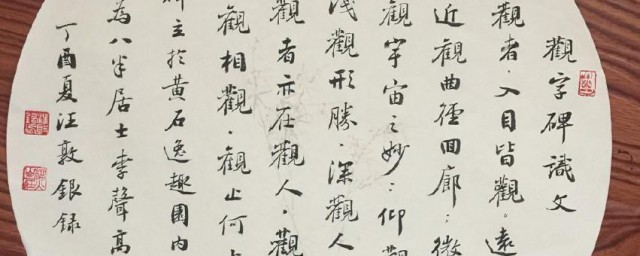 觀字碑識文
觀者·入目皆觀。遠
近觀曲徑回廊；微
觀宇宙之妙；仰觀
淺觀形勝·深觀人
觀者亦在觀人·觀
觀相觀·觀止何
立於黄石逸趣園内
為八半居士李聲高
丁酉夏汪敦銀録